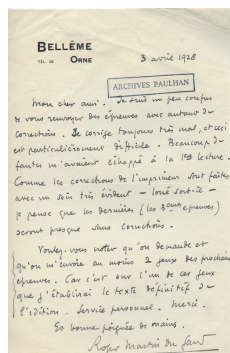 BELLÊME
TÉL. 26 ORNE
3 avril 1928
ARCHIVES PAULHAN
Mon cher ami. Je suis un peu confus
de vous renvoyer des épreuves avec autant de
corrections. Je corrige toujours très mal, et ceci
est particulièrement difficile. Beaucoup de
fautes m'avaient échappé à la 1ère lecture.
Comme les corrections de l'imprimeur sont faites
avec un soin très évident – loué soit-il –
je pense que les dernières (les 3èmes épreuves)
seront presque sans corrections.
Voulez-vous noter qu'on demande et
qu'on m'envoie au moins 2 jeux des prochaines
épreuves. Car c'est sur l'un de ces jeux
que j'établirai le texte définitif de
l'édition. Service personnel. Merci.
Et bonne poignée de mains.
Roger Martin du Gard